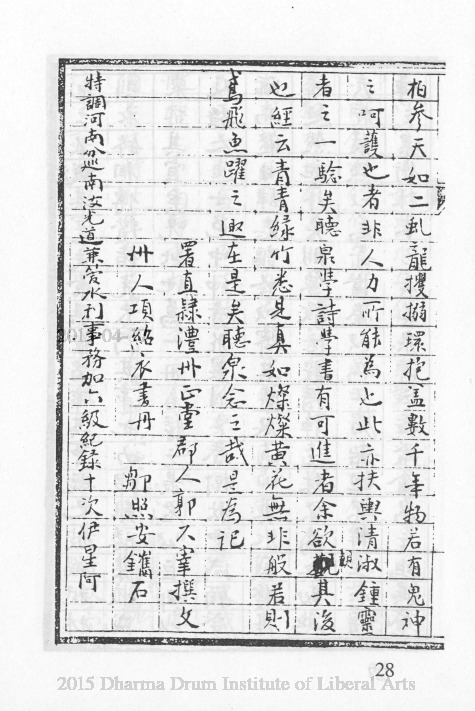 柏參天如二虬龍攫搦環抱盖數千年物若有鬼神
之呵護也者非人力所能為也此亦扶輿清淑鍾靈
者之一驗矣聽泉學詩學書有可進者余欲觀其後
也經云青青綠竹悉是真如燦燦黃花無非般若則
鳶飛魚躍之趣在是矣聽泉念之哉是為記
署直隸澧州正堂郡人郭久 撰文
州人項 衣書丹 鄒照安鐫石
特調河南 南汝光道兼管水利事務加六級紀錄十次伊星阿
28
2015 Dharma Drum Institute of Liberal Arts